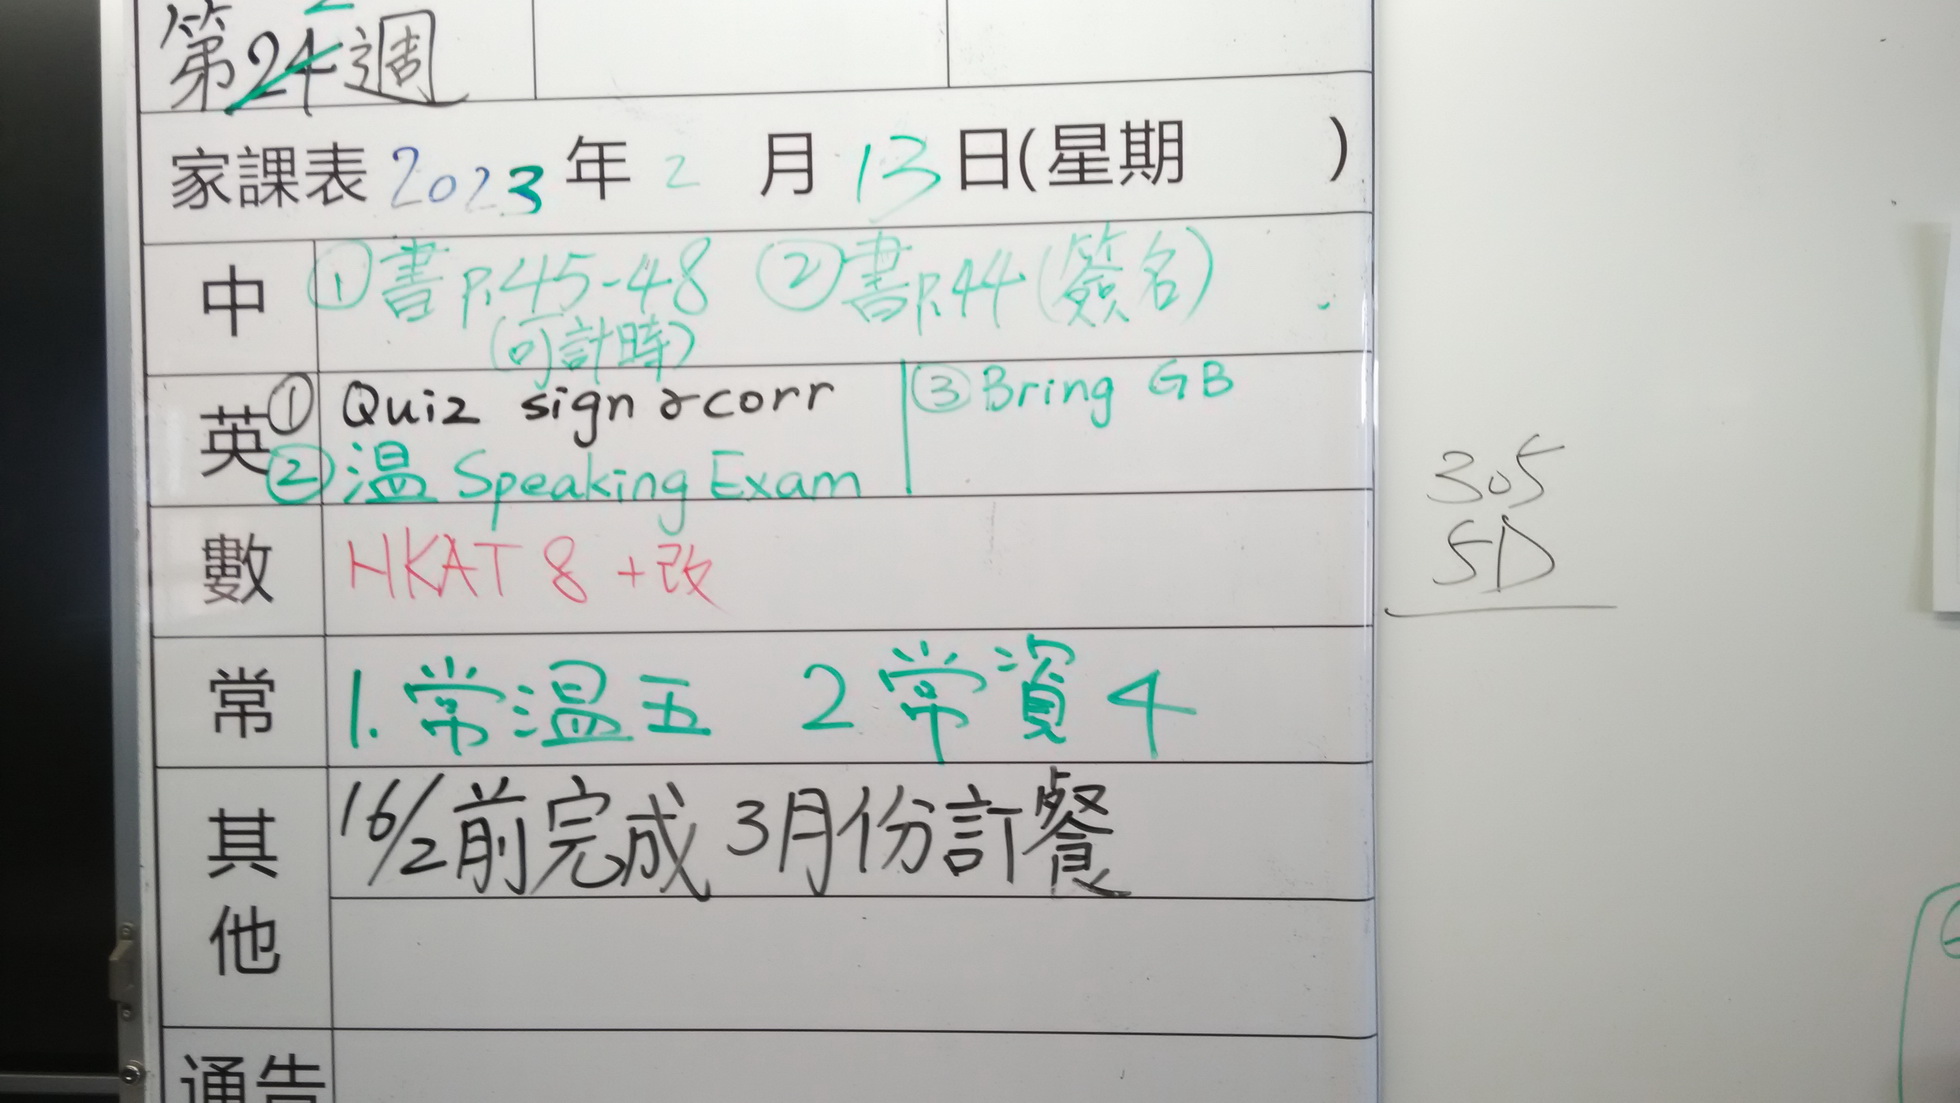 第24週
家課表 2023年 2 月 13 日(星期 )
中 ①書p.45-48 ②書p.44(簽名)
(可計時)
英 ① Quiz sign & corr ③ Bring GB
② 温 Speaking Exam
數 HKAT 8 +改
常 1. 常温五 2 常資 4
其他 16/2前完成 3月份訂餐
通告
305
5D